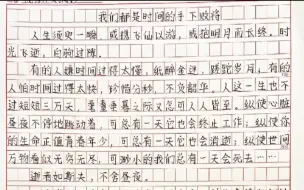 我们都是时间的手下败将
人生须臾一瞬，或携飞仙以遨游，或抱明月而长终，时
光飞逝，白驹过隙。
有的人嫌时间过得太慢，纸醉金迷，蹉跎岁月；有的人
怕时间过得太快，珍惜分秒，不负韶华。人这一生也不
过短短三万天，垂垂暮之际又忽可人人皆至，纵使心脏
昼夜不停地跳动着，可总有一天它也会终止工作；纵使你
的生命正值青春年少，可总有一天它也会消逝；纵使世间
万物看似无穷无尽，可渺小的我们总有一天会死去……
逝者如斯夫，不舍昼夜。